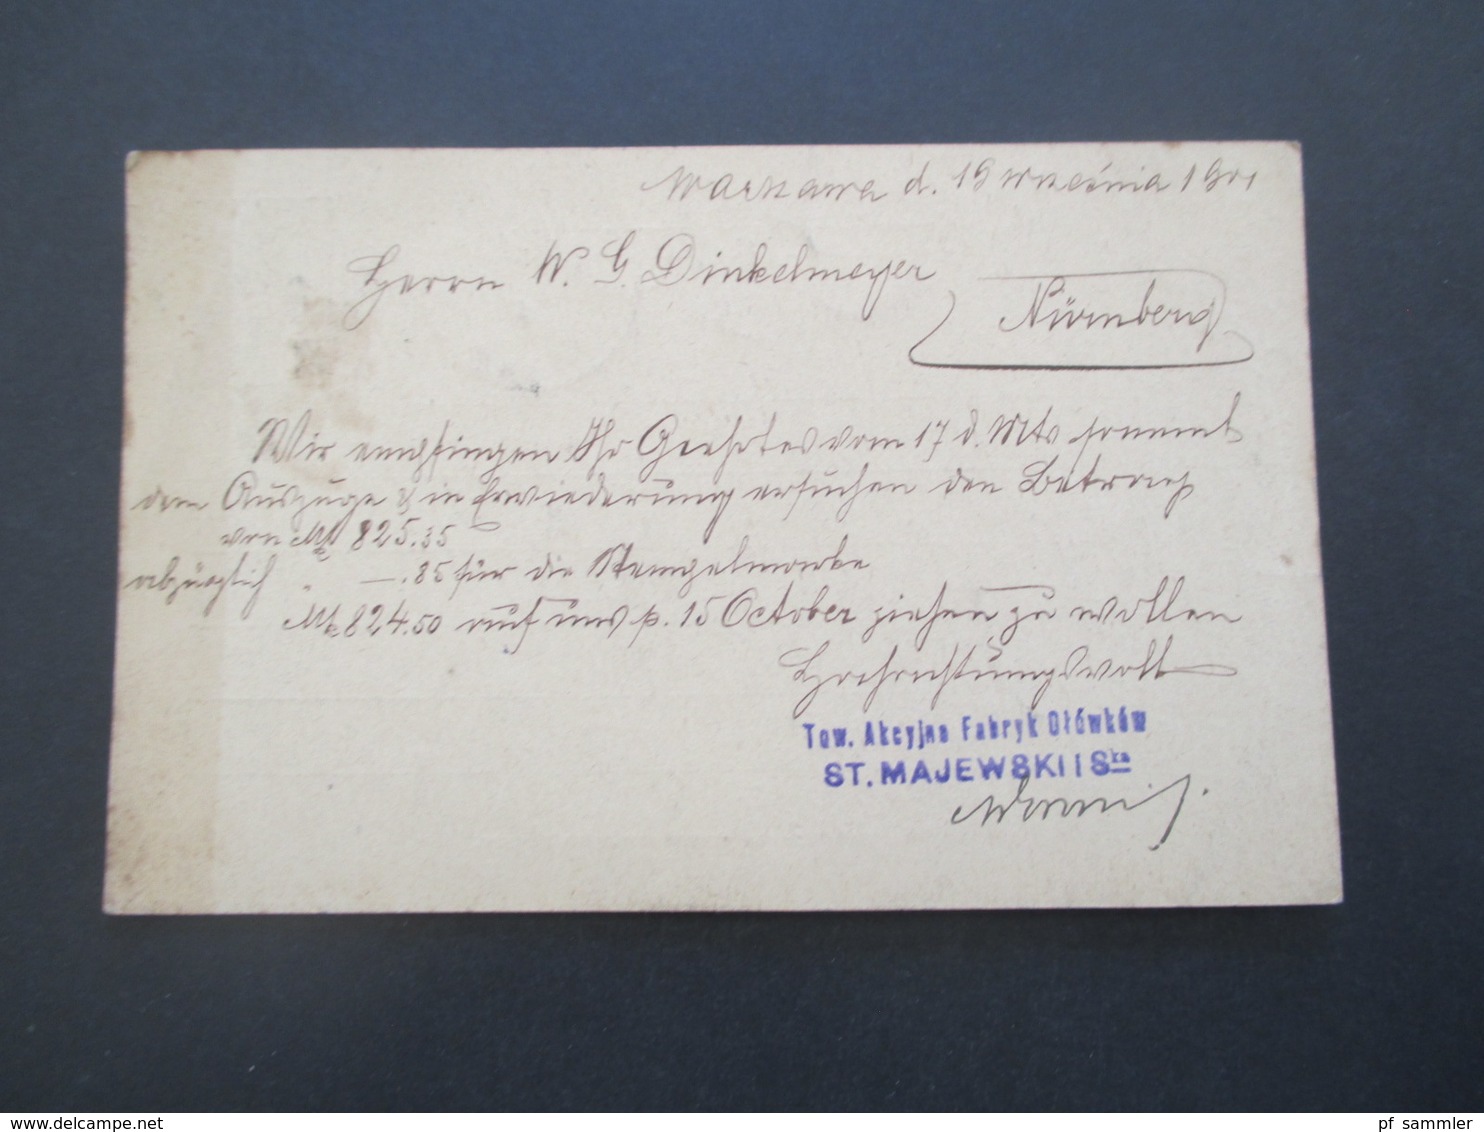 Warszawa d. 19 września 1901
Herrn W. G. Dinkelmeyer
Nürnberg
Wir empfingen Ihr Geehrtes vom 17 d. Mts sammt
dem Auszuge & in Erwiederung ersuchen den Betrag
von Mk 825.35
abzüglich " —.85 für die Stempelmarke
Mk 824.50 auf uns p. 15 October ziehen zu wollen
Hochachtungsvoll
Tow. Akcyjne Fabryk Ołówków
ST. MAJEWSKI i Ska
www.delcampe.net
pf_sammler